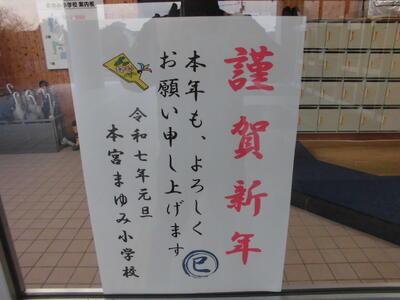 謹賀新年
本年も、よろしく
お願い申し上げます
令和七年元旦
本宮まゆみ小学校
巳